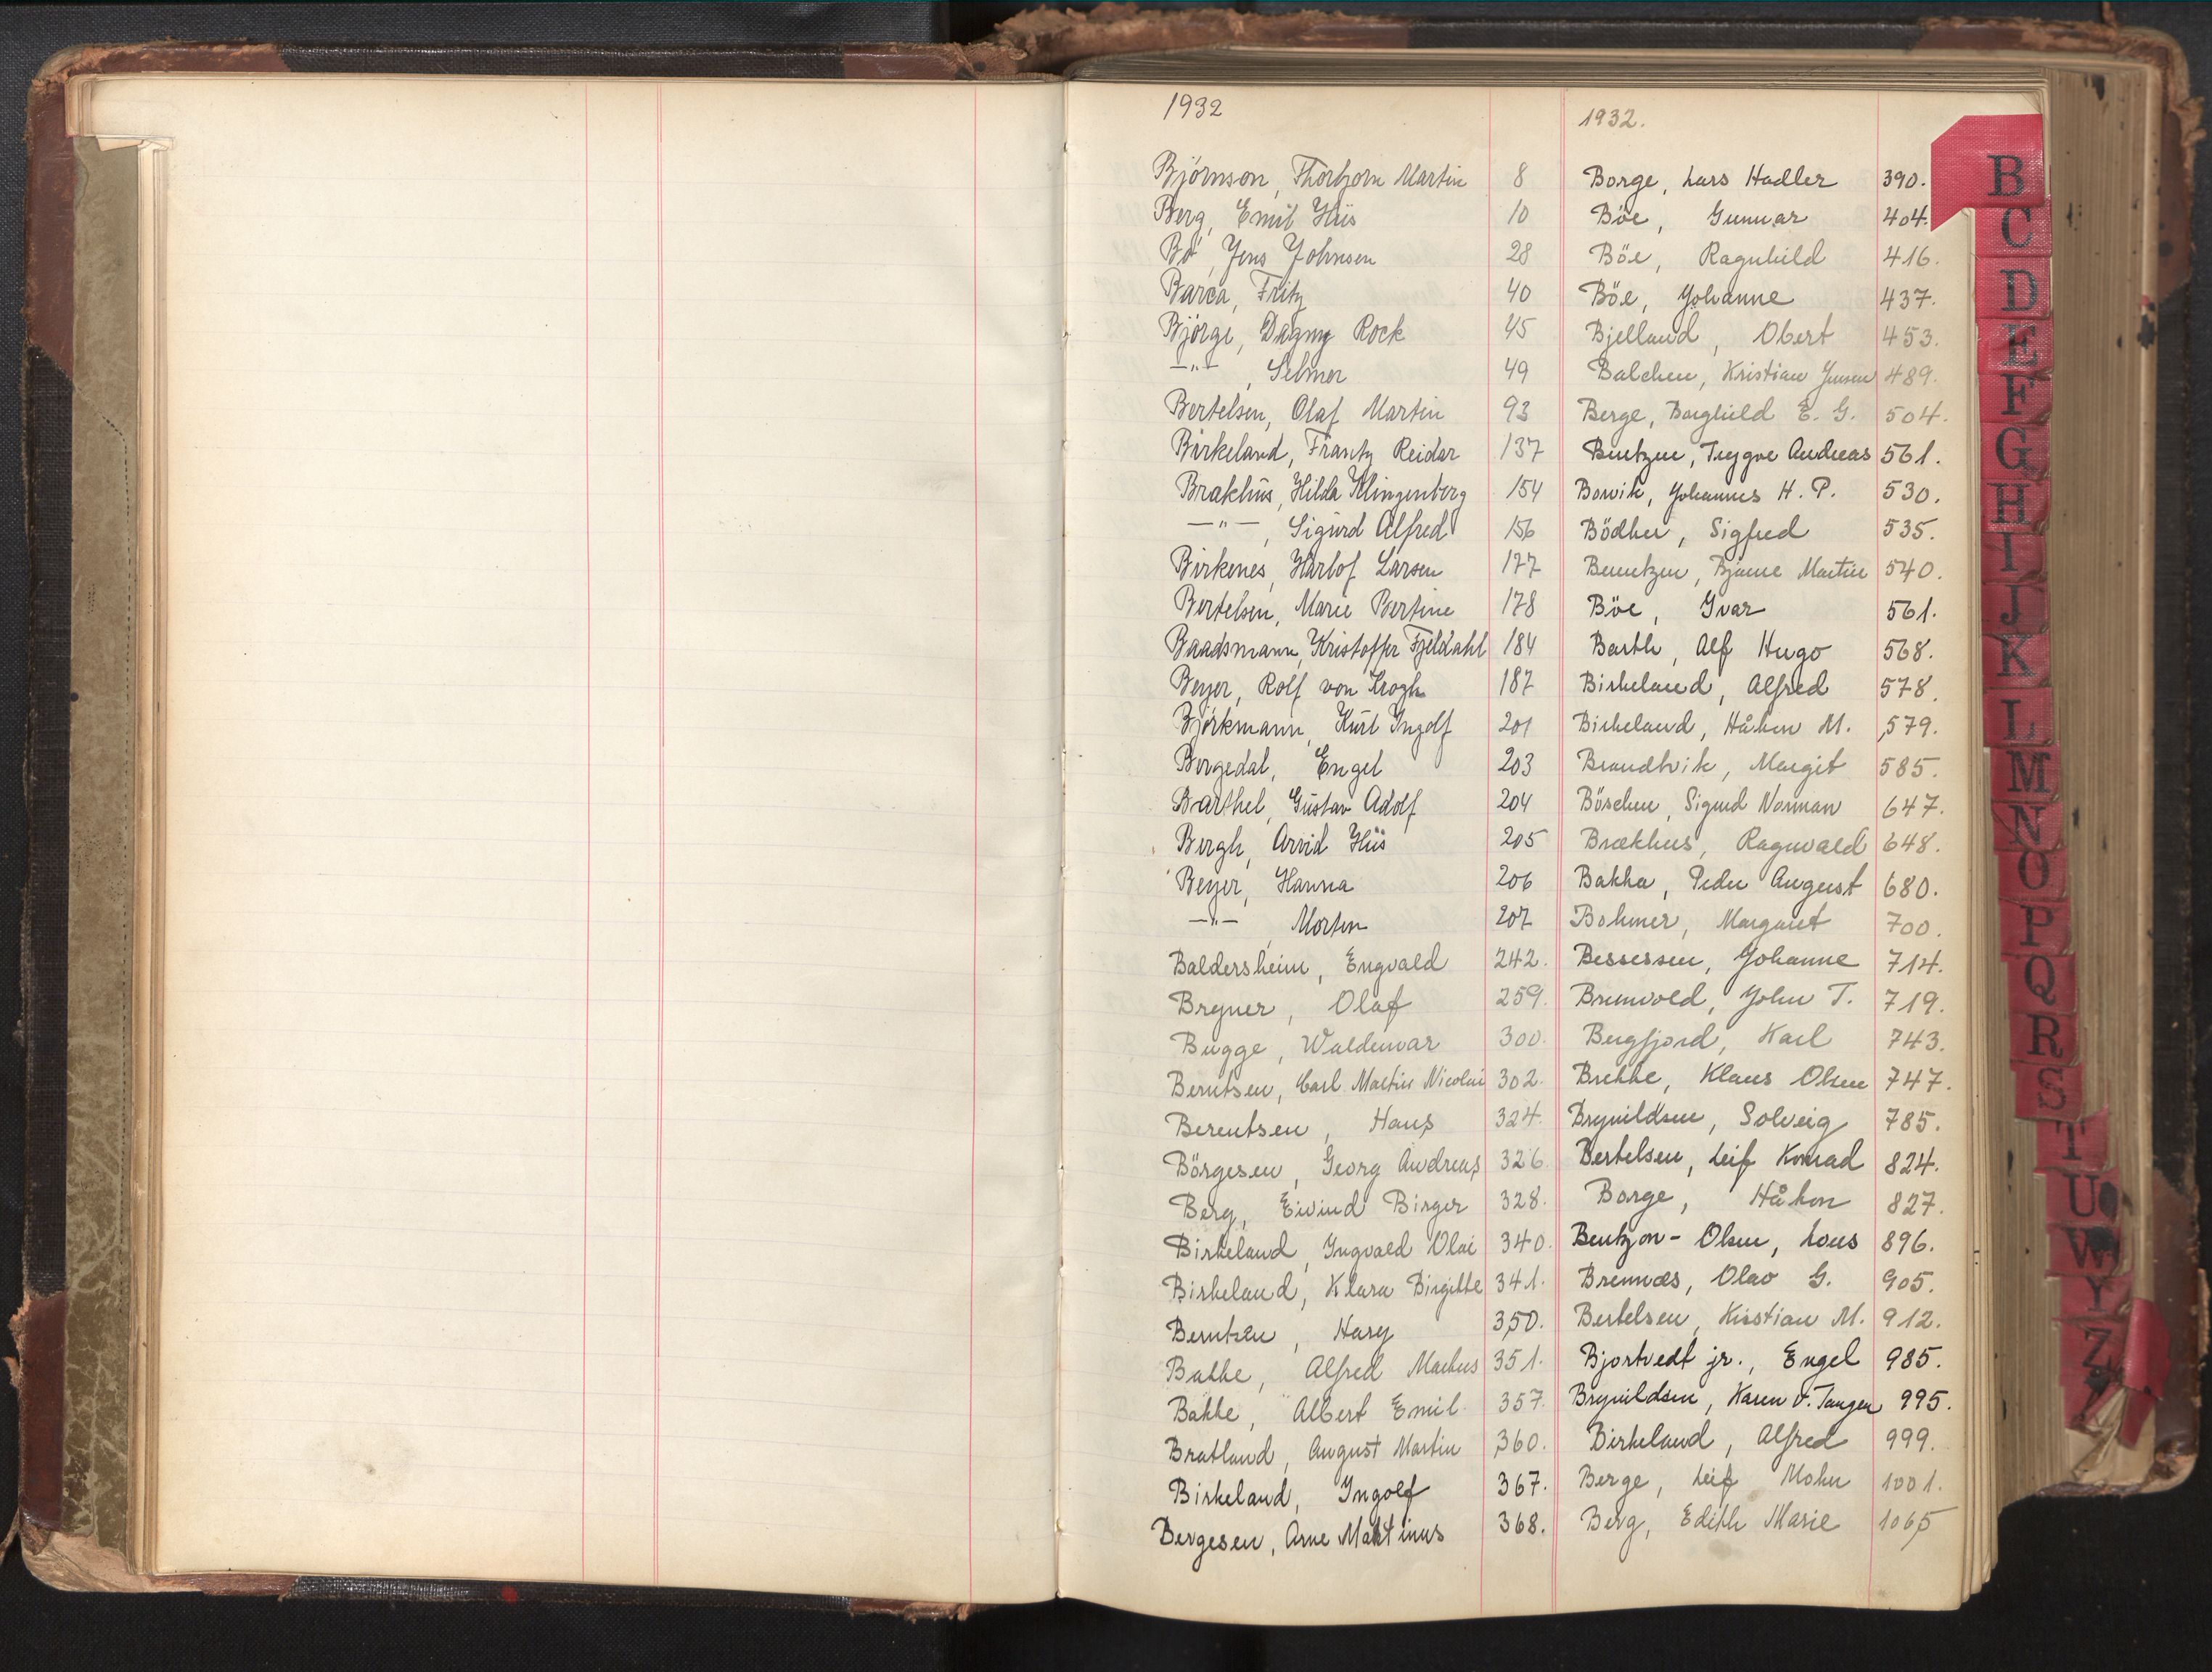 1932
Björnson, Thorbjorn Martin 8
Berg, Emil Hüs 10
Bö, Jens Johnsen 28
Barca, Fritz 40
Björge, Dagny Rock 45
—"— , Selmer 49
Bertelsen, Olaf Martin 93
Birkeland, Frantz Reidar 137
Brakhüs, Hilda Klingenberg 154
—"— , Sigürd Alfred 156
Birkenes, Harlof Larsen 177
Bertelsen, Marie Bertine 178
Baadsmann, Kristoffer Fjeldahl 184
Beyer, Rolf von Krogh 187
Björkmann, Kürt Ingolf 201
Borgedal, Engel 203
Barthel, Güstav Adolf 204
Bergh, Arvid Hüs 205
Beyer, Hanna 206
—"— , Morten 207
Baldersheim, Engvald 242.
Bryner, Olaf 259.
Bugge, Waldemar 300.
Berntsen, Carl Martin Nicolai 302.
Berentsen, Hans 324.
Börgesen, Georg Andreas 326.
Berg, Eivind Birger 328.
Birkeland, Ingvald Olai 340.
Birkeland, Klara Birgitte 341.
Berntzen, Harry 350.
Bakke, Alfred Markus 351.
Bakke, Albert Emil 357.
Bratland, August Martin 360.
Birkeland, Ingolf 367.
Bergesen, Arne Martinus 368.
1932.
Borge, Lars Hadler 390.
Böe, Gunnar 404.
Böe, Ragnhild 416.
Böe, Johanne 437.
Bjelland, Obert 453.
Balchen, Kristian Jensen 489.
Berge, Borghild E. G. 504.
Bentzen, Trygve Andreas 561.
Borvik, Johannes H. P. 530.
Bödker, Sigfred 535.
Berntzen, Bjarne Martin 540.
Böe, Ivar 561.
Barth, Alf Hugo 568.
Birkeland, Alfred 578.
Birkeland, Håkon M. 579.
Brandtvik, Margit 585.
Böschen, Sigurd Norman 647.
Brækhus, Ragnvald 648.
Bakka, Peder August 680.
Bohmer, Margaret 700.
Bessesen, Johanne 714.
Brunvold, John T. 719.
Bergfjord, Karl 743.
Brekke, Klaus Olsen 747.
Brynildsen, Solveig 785.
Bertelsen, Leif Konrad 824.
Borge, Håkon 827.
Bentzon-Olsen, Lous 896.
Brennæs, Olav G. 905.
Bertelsen, Kristian M. 912.
Bjortvedt jr., Engel 985.
Brynildsen, Karen v. Tangen 995.
Birkeland, Alfred 999.
Berge, Leif Mohn 1001.
Berg, Edith Marie 1065
B
C
D
E
F
G
H
I
J
K
L
M
N
O
P
Q
R
S
T
U
W
Y
Z